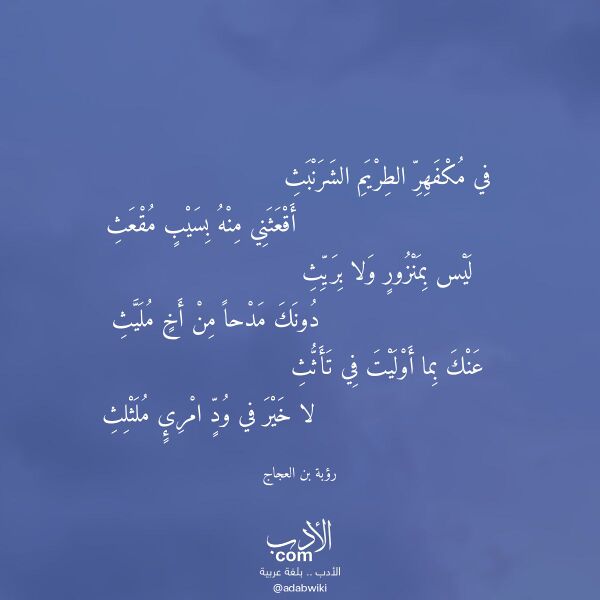 في مُكْفَهِرِّ الطِرْيَمِ الشَرَنْبَثِ
أَقْعَثَنِي مِنْهُ بِسَيْبٍ مُقْعَثِ
لَيْس بِمَنْزُورٍ وَلا بِرَيِّثِ
دُونَكَ مَدْحاً مِنْ أَخٍ مُلَيَّثِ
عَنْكَ بِما أَوْلَيْتَ فِي تَأَثُّثِ
لا خَيْرَ في وُدِّ امْرِئٍ مُلَثْلِثِ
رؤبة بن العجاج
الأدب
com
الأدب .. بلغة عربية
@adabwiki